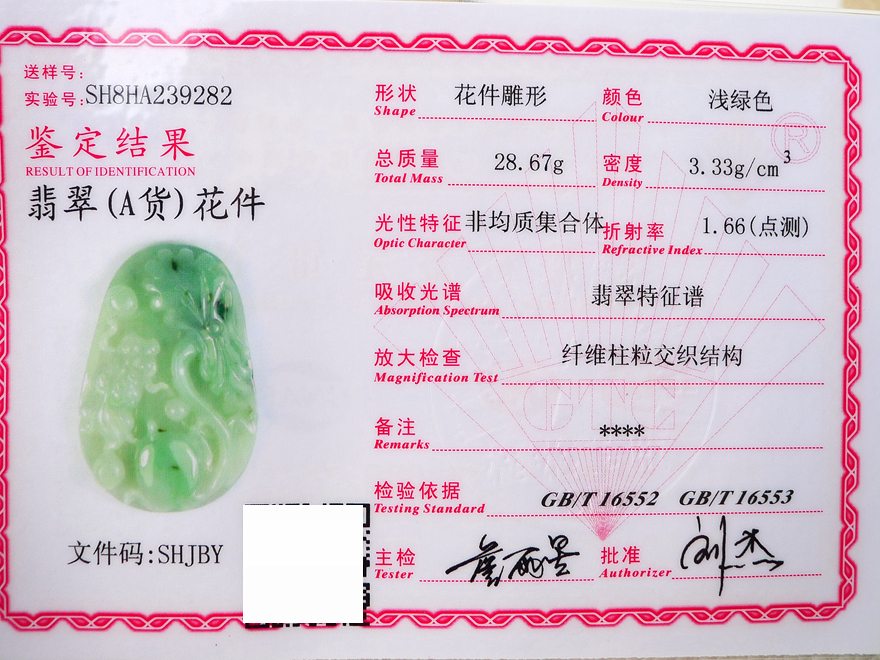 送样号:
实验号:SH8HA239282
鉴定结果
RESULT OF IDENTIFICATION
翡翠(A货)花件
文件码:SHJBY
形状 花件雕形 颜色 浅绿色
Shape Colour
总质量 28.67g 密度 3.33g/cm³
Total Mass Density
光性特征 非均质集合体 折射率 1.66(点测)
Optic Character Refractive Index
吸收光谱 翡翠特征谱
Absorption Spectrum
放大检查 纤维柱粒交织结构
Magnification Test
GTC
备注 ****
Remarks
检验依据 GB/T 16552 GB/T 16553
Testing Standard
主检 批准 刘杰
Tester Authorizer
®